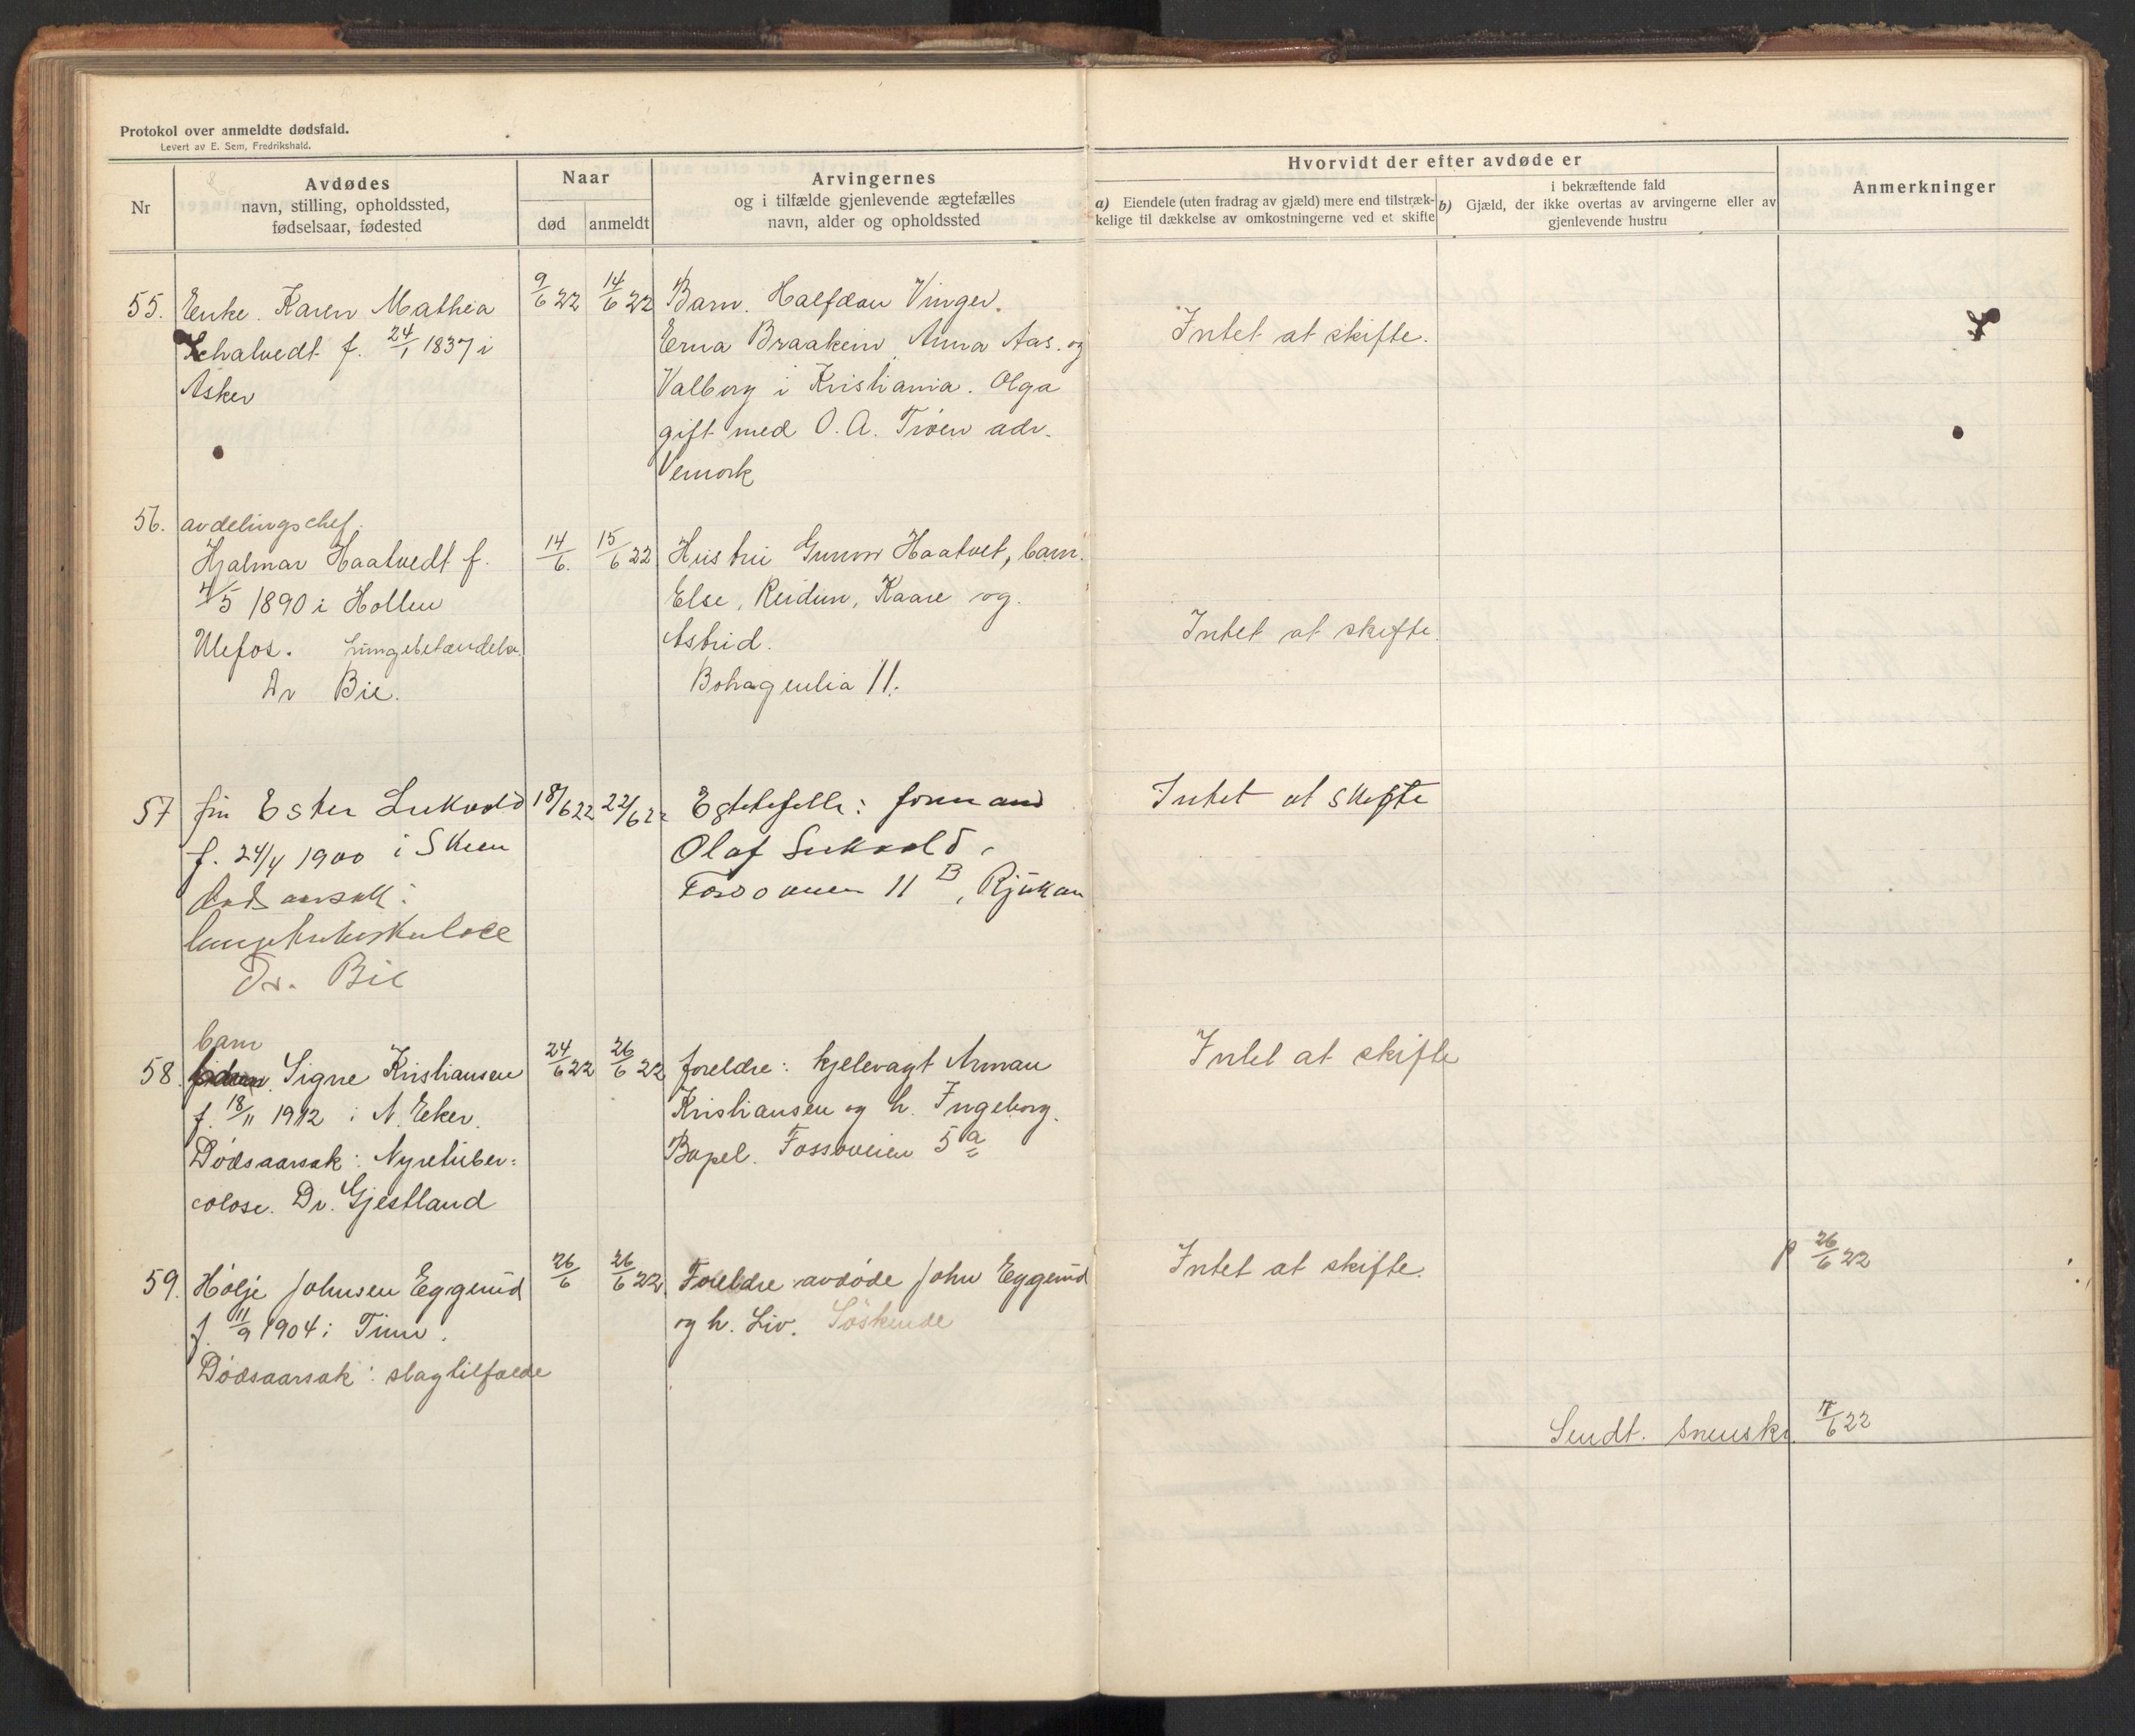 Protokol over anmeldte dødsfald.
Levert av E. Sem, Fredrikshald.
Nr
Avdødes
navn, stilling, opholdssted,
fødselsaar, fødested
Naar
død
anmeldt
Arvingernes
og i tilfælde gjenlevende ægtefælles
navn, alder og opholdssted
Hvorvidt der efter avdøde er
a) Eiendele (uten fradrag av gjæld) mere end tilstræk-
kelige til dækkelse av omkostningerne ved et skifte
i bekræftende fald
b) Gjæld, der ikke overtas av arvingerne eller av
gjenlevende hustru
Anmerkninger
55. Enke. Karen Mathea
f. 24/1 1837 i
Asker
9/6 22
14/6 22
Barn. Halfdan Vinger.
Erna Braakein Anna Aas. og
Valborg i Kristiania. Olga
gift med O. A. Trøen adr.
Vemork
Intet at skifte.
56. avdelingschef.
Hjalmar Haatvedt f.
4/5 1890 i Hollen
Ulefos. Lungebetændelse.
Dr Bie.
14/6.
15/6 22
Hustru Gunvor Haatvet, barn.
Else, Reidun, Kaare og.
Astrid.
11.
Intet at skifte.
57 fru Ester
f. 24/4 1900 i Skien
Dødsaarsak:
lungetuberkulose
Dr. Bie
18/6 22
22/6 22
Egtefelle: formand
Olaf
Fossoveien 11 B, Rjukan
Intet at skifte
barn
58. Signe Kristiansen
f. 18/11 1912 i N. Eker.
Dødsaarsak: Nyretuber-
colose. Dr. Gjestland
24/6 22
26/6 22
foreldre: kjelevagt Arman
Kristiansen og h. Ingeborg.
Bopel. Fossoveien 5 a
Intet at skifte
59. Hølje Johnsen Eggerud
f. 11/9 1904 i Tinn.
Dødsaarsak: slagtilfælde
26/6
26/6 22
Foreldre avdøde John Eggerud
og h. Liv. Søskende
Intet at skifte.
26/6 22
Sendt. 7/6 22